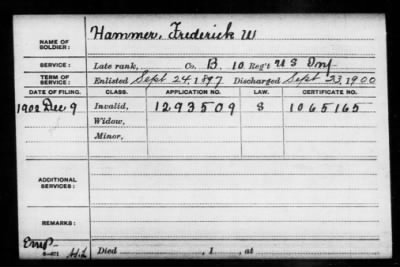 NAME OF SOLDIER: Hammer, Frederick W
SERVICE: Late rank, Co. B, 10 Reg't U S Inf.
TERM OF SERVICE: Enlisted Sept 24, 1897 Discharged Sept 23, 1900
DATE OF FILING. CLASS. APPLICATION NO. LAW. CERTIFICATE NO.
1902 Dec 9 Invalid, 1293509 S 1065165
Widow,
Minor,
ADDITIONAL SERVICES:
REMARKS:
Died , 1 , at